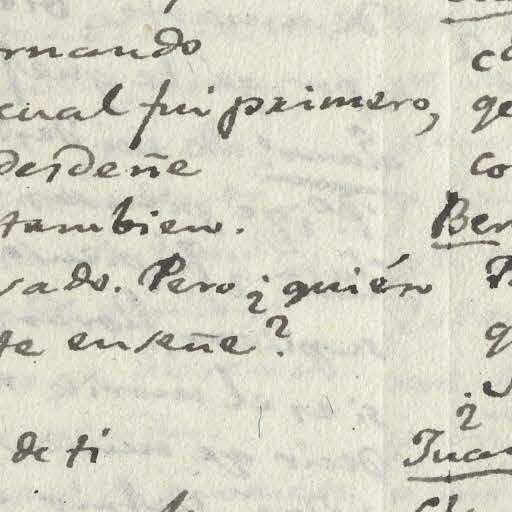 rnando
cual fui primero,
desdeñe
tambien.
sado. Pero ¿quién
te enseñe?
de ti
co
Ber
¿
Juan